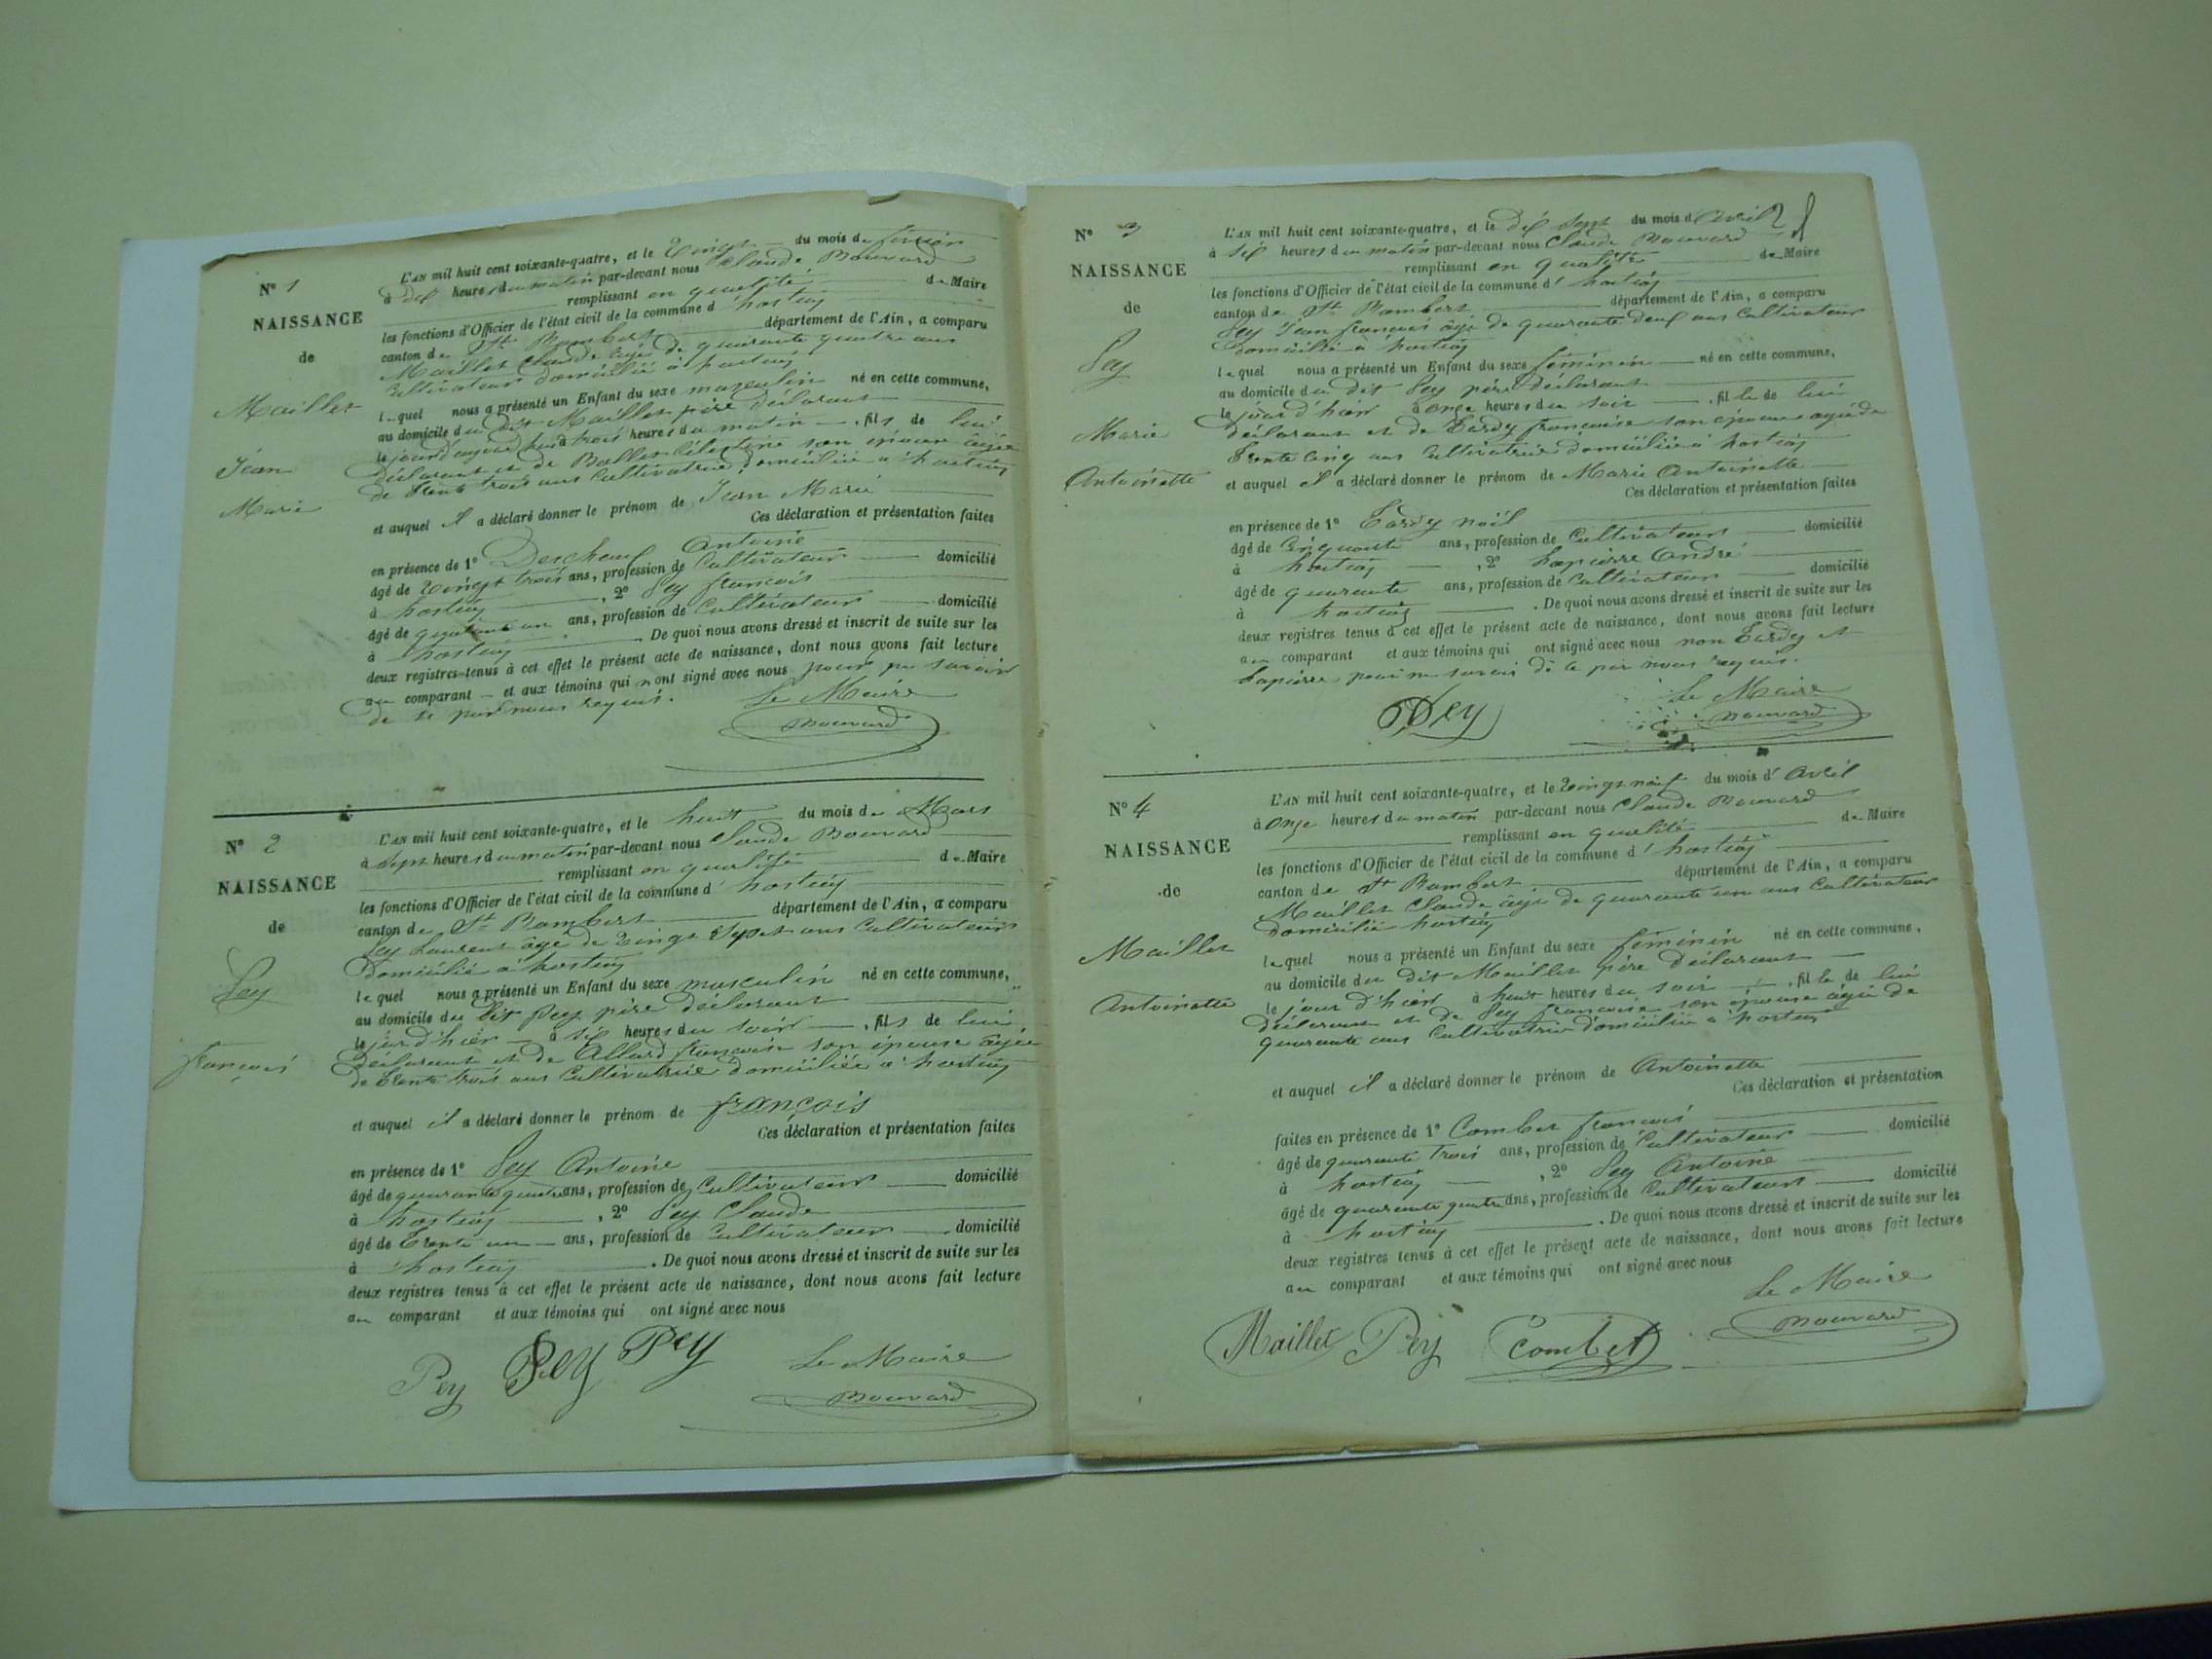 N° 1
NAISSANCE
de
Maillet
Jean
Marie
L'AN mil huit cent soixante-quatre, et le Vingt du mois de février
à dix heures du matin par-devant nous Claude Bouvard
remplissant en qualité de Maire
les fonctions d'Officier de l'état civil de la commune d' hostias
canton de St Rambert département de l'Ain, a comparu
Maillet Claude âgé de quarante quatre ans
Cultivateur domicilié à hostias
lequel nous a présenté un Enfant du sexe masculin né en cette commune,
au domicile du dit Maillet père déclarant
le jourd'aujourd'hui à trois heures du matin, fils de lui
déclarant et de Ballet Célestine son épouse âgée
de trente trois ans Cultivatrice domiciliée à hostias
et auquel il a déclaré donner le prénom de Jean Marie
Ces déclaration et présentation faites
en présence de 1° Descheux Antoine
âgé de Vingt trois ans, profession de Cultivateur domicilié
à hostias, 2° Pey françois
âgé de quarante un ans, profession de Cultivateur domicilié
à hostias. De quoi nous avons dressé et inscrit de suite sur les
deux registres tenus à cet effet le présent acte de naissance, dont nous avons fait lecture
au comparant et aux témoins qui n'ont signé avec nous pour ne savoir
de ce par nous requis.
Le Maire
Bouvard
N° 2
NAISSANCE
de
Pey
françois
L'AN mil huit cent soixante-quatre, et le huit du mois de Mars
à sept heures du matin par-devant nous Claude Bouvard
remplissant en qualité de Maire
les fonctions d'Officier de l'état civil de la commune d' hostias
canton de St Rambert département de l'Ain, a comparu
Pey Laurent âgé de Vingt Sept ans Cultivateur
domicilié à hostias
lequel nous a présenté un Enfant du sexe masculin né en cette commune,
au domicile du dit Pey père déclarant
le jour d'hier à six heures du soir, fils de lui
déclarant et de Allard françoise son épouse âgée
de trente trois ans Cultivatrice domiciliée à hostias
et auquel il a déclaré donner le prénom de françois
Ces déclaration et présentation faites
en présence de 1° Pey Antoine
âgé de quarante quatre ans, profession de Cultivateur domicilié
à hostias, 2° Pey Claude
âgé de trente un ans, profession de Cultivateur domicilié
à hostias. De quoi nous avons dressé et inscrit de suite sur les
deux registres tenus à cet effet le présent acte de naissance, dont nous avons fait lecture
au comparant et aux témoins qui ont signé avec nous
Pey Pey Pey
Le Maire
Bouvard
N° 3
NAISSANCE
de
Pey
Marie
Antoinette
L'AN mil huit cent soixante-quatre, et le dix sept du mois d'Avril 2
à six heures du matin par-devant nous Claude Bouvard
remplissant en qualité de Maire
les fonctions d'Officier de l'état civil de la commune d' hostias
canton de St Rambert département de l'Ain, a comparu
Pey Jean françois âgé de quarante deux ans Cultivateur
domicilié à hostias
lequel nous a présenté un Enfant du sexe féminin né en cette commune,
au domicile du dit Pey père déclarant
le jour d'hier à onze heures du soir, fille de lui
déclarant et de Tardy françoise son épouse âgée de
trente cinq ans Cultivatrice domiciliée à hostias
et auquel il a déclaré donner le prénom de Marie Antoinette
Ces déclaration et présentation faites
en présence de 1° Tardy noël
âgé de Cinquante ans, profession de Cultivateur domicilié
à hostias, 2° Lapierre André
âgé de quarante ans, profession de Cultivateur domicilié
à hostias. De quoi nous avons dressé et inscrit de suite sur les
deux registres tenus à cet effet le présent acte de naissance, dont nous avons fait lecture
au comparant et aux témoins qui ont signé avec nous non Tardy et
Lapierre pour ne savoir de ce par nous requis.
Pey
Le Maire
Bouvard
N° 4
NAISSANCE
de
Maillet
Antoinette
L'AN mil huit cent soixante-quatre, et le Vingt neuf du mois d' Avril
à onze heures du matin par-devant nous Claude Bouvard
remplissant en qualité de Maire
les fonctions d'Officier de l'état civil de la commune d' hostias
canton de St Rambert département de l'Ain, a comparu
Maillet Claude âgé de quarante un ans Cultivateur
domicilié hostias
lequel nous a présenté un Enfant du sexe féminin né en cette commune,
au domicile du dit Maillet père déclarant
le jour d'hier à huit heures du soir, fille de lui
déclarant et de Pey françoise son épouse âgée de
quarante ans Cultivatrice domiciliée à hostias
et auquel il a déclaré donner le prénom de Antoinette
Ces déclaration et présentation
faites en présence de 1° Combet françois
âgé de quarante trois ans, profession de Cultivateur domicilié
à hostias, 2° Pey Antoine
âgé de quarante quatre ans, profession de Cultivateur domicilié
à hostias. De quoi nous avons dressé et inscrit de suite sur les
deux registres tenus à cet effet le présent acte de naissance, dont nous avons fait lecture
au comparant et aux témoins qui ont signé avec nous
Le Maire
Maillet Pey Combet Bouvard